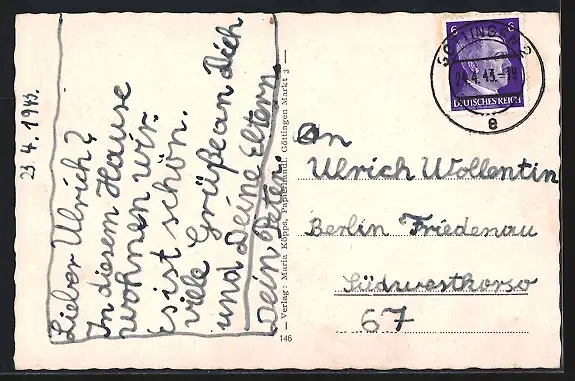 23. 4. 1943.
Lieber Ulrich?
In diesem Hause
wohnen wir.
es ist schön.
viele Grüße an Dich
und Deine Eltern
Dein Peter.
146 — Verlag: Maria Köpps, Papierhandl. Göttingen Markt 3 —
6 6
DEUTSCHES REICH
GÖTTINGEN 2
24.4.43.-18
e
An
Ulrich Wollentin
Berlin Friedenau
Südwestkorso
67